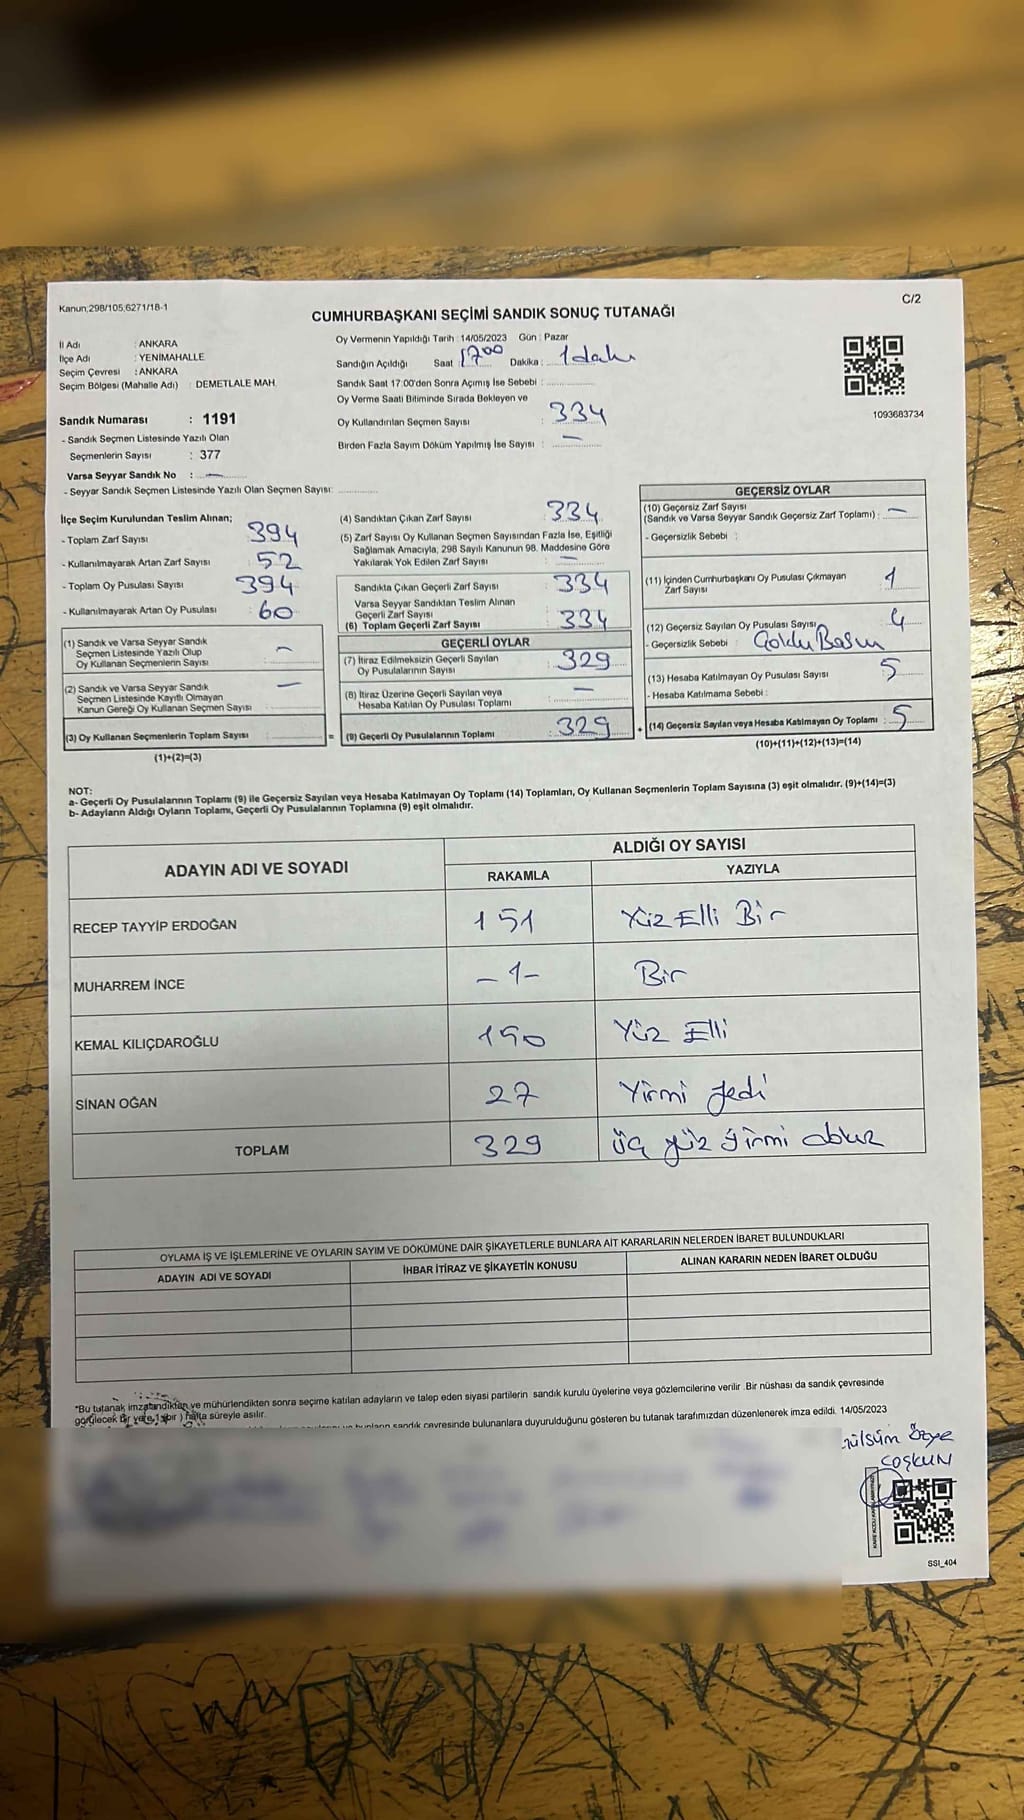 Kanun;298/105,6271/18-1
C/2
CUMHURBAŞKANI SEÇİMİ SANDIK SONUÇ TUTANAĞI
İl Adı : ANKARA
İlçe Adı : YENİMAHALLE
Seçim Çevresi : ANKARA
Seçim Bölgesi (Mahalle Adı) : DEMETLALE MAH.
Sandık Numarası : 1191
- Sandık Seçmen Listesinde Yazılı Olan
Seçmenlerin Sayısı : 377
Varsa Seyyar Sandık No : —
- Seyyar Sandık Seçmen Listesinde Yazılı Olan Seçmen Sayısı:
Oy Vermenin Yapıldığı Tarih : 14/05/2023 Gün : Pazar
Sandığın Açıldığı Saat : 17:00 Dakika :
Sandık Saat 17:00'den Sonra Açımış İse Sebebi :
Oy Verme Saati Bitiminde Sırada Bekleyen ve
Oy Kullandırılan Seçmen Sayısı : 334
Birden Fazla Sayım Döküm Yapılmış İse Sayısı : —
1093683734
İlçe Seçim Kurulundan Teslim Alınan;
- Toplam Zarf Sayısı : 394
- Kullanılmayarak Artan Zarf Sayısı : 52
- Toplam Oy Pusulası Sayısı : 394
- Kullanılmayarak Artan Oy Pusulası : 60
(1) Sandık ve Varsa Seyyar Sandık
Seçmen Listesinde Yazılı Olup
Oy Kullanan Seçmenlerin Sayısı : —
(2) Sandık ve Varsa Seyyar Sandık
Seçmen Listesinde Kayıtlı Olmayan
Kanun Gereği Oy Kullanan Seçmen Sayısı : —
(3) Oy Kullanan Seçmenlerin Toplam Sayısı :
(1)+(2)=(3)
(4) Sandıktan Çıkan Zarf Sayısı : 334
(5) Zarf Sayısı Oy Kullanan Seçmen Sayısından Fazla İse, Eşitliği
Sağlamak Amacıyla, 298 Sayılı Kanunun 98. Maddesine Göre
Yakılarak Yok Edilen Zarf Sayısı : —
Sandıkta Çıkan Geçerli Zarf Sayısı : 334
Varsa Seyyar Sandıktan Teslim Alınan
Geçerli Zarf Sayısı :
(6) Toplam Geçerli Zarf Sayısı : 334
=
GEÇERLİ OYLAR
(7) İtiraz Edilmeksizin Geçerli Sayılan
Oy Pusulalarının Sayısı : 329
(8) İtiraz Üzerine Geçerli Sayılan veya
Hesaba Katılan Oy Pusulası Toplamı : —
(9) Geçerli Oy Pusulalarının Toplamı : 329
+
GEÇERSİZ OYLAR
(10) Geçersiz Zarf Sayısı
(Sandık ve Varsa Seyyar Sandık Geçersiz Zarf Toplamı) : —
- Geçersizlik Sebebi :
(11) İçinden Cumhurbaşkanı Oy Pusulası Çıkmayan
Zarf Sayısı : 1
(12) Geçersiz Sayılan Oy Pusulası Sayısı : 4
- Geçersizlik Sebebi :
(13) Hesaba Katılmayan Oy Pusulası Sayısı : 5
- Hesaba Katılmama Sebebi :
(14) Geçersiz Sayılan veya Hesaba Katılmayan Oy Toplamı : 5
(10)+(11)+(12)+(13)=(14)
NOT:
a- Geçerli Oy Pusulalarının Toplamı (9) ile Geçersiz Sayılan veya Hesaba Katılmayan Oy Toplamı (14) Toplamları, Oy Kullanan Seçmenlerin Toplam Sayısına (3) eşit olmalıdır. (9)+(14)=(3)
b- Adayların Aldığı Oyların Toplamı, Geçerli Oy Pusulalarının Toplamına (9) eşit olmalıdır.
ADAYIN ADI VE SOYADI ALDIĞI OY SAYISI
RAKAMLA YAZIYLA
RECEP TAYYİP ERDOĞAN 151 Yüz Elli Bir
MUHARREM İNCE -1- Bir
KEMAL KILIÇDAROĞLU 150 Yüz Elli
SİNAN OĞAN 27 Yirmi Yedi
TOPLAM 329 üç yüz yirmi dokuz
OYLAMA İŞ VE İŞLEMLERİNE VE OYLARIN SAYIM VE DÖKÜMÜNE DAİR ŞİKAYETLERLE BUNLARA AİT KARARLARIN NELERDEN İBARET BULUNDUKLARI
ADAYIN ADI VE SOYADI İHBAR İTİRAZ VE ŞİKAYETİN KONUSU ALINAN KARARIN NEDEN İBARET OLDUĞU
*Bu tutanak imzalandıktan ve mühürlendikten sonra seçime katılan adayların ve talep eden siyasi partilerin sandık kurulu üyelerine veya gözlemcilerine verilir .Bir nüshası da sandık çevresinde
görülecek bir yere 1 (bir ) hafta süreyle asılır.
bunların sandık çevresinde bulunanlara duyurulduğunu gösteren bu tutanak tarafımızdan düzenlenerek imza edildi. 14/05/2023
COŞKUN
SSI_404